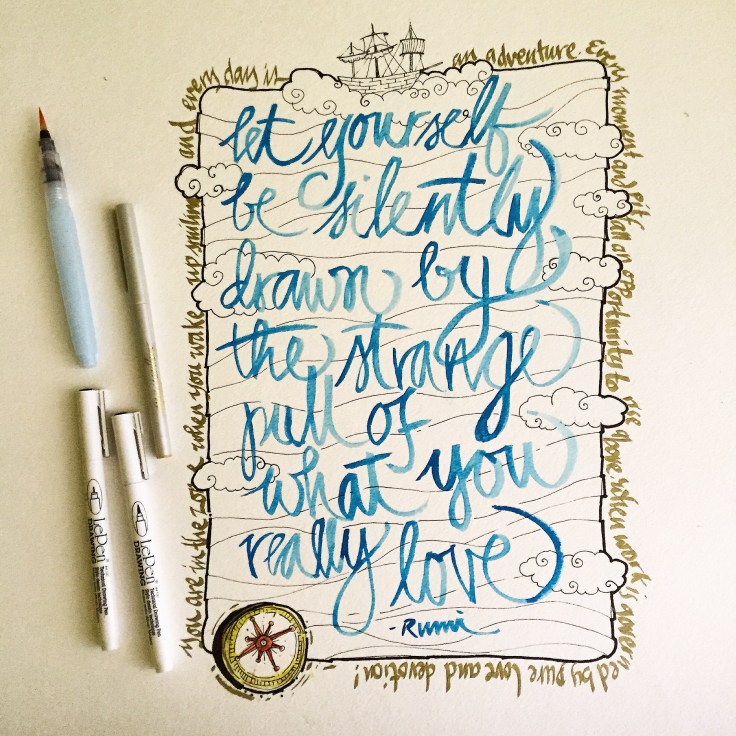 let yourself
be silently
drawn by
the strange
pull of
what you
really love
-Rumi
You are in the zone when you wake up smiling
and every day is
an adventure. Every moment and pitfall an opportunity to rise above when work is governed
by pure love and devotion!
LePen
DRAWING
LePen
DRAWING